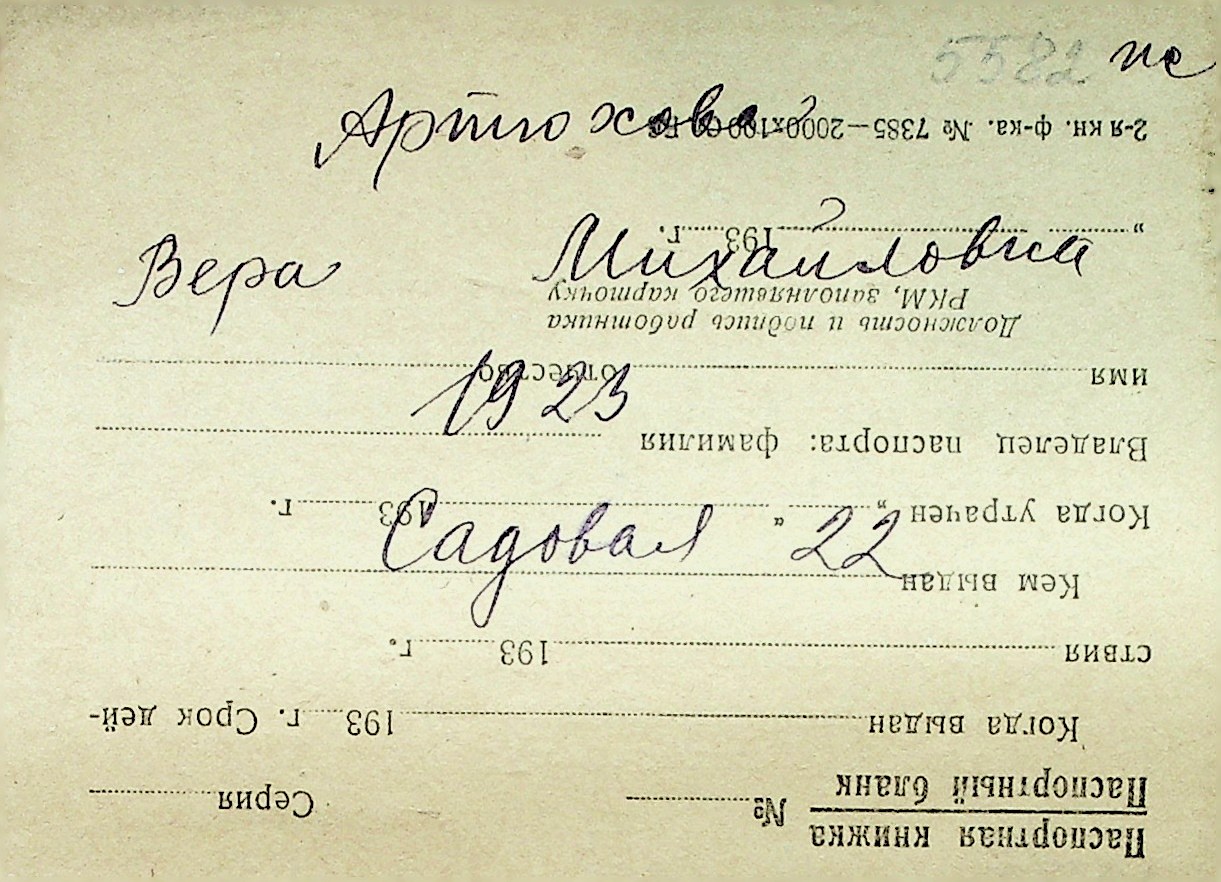 5582
Артюхова
Вера Михайловна
1923
Садовая 22
Паспортная книжка
Паспортный бланк № Серия
Когда выдан 193 г. Срок дей-
ствия 193 г.
Кем выдан
Когда утрачен „ “ 193 г.
Владелец паспорта: фамилия
имя отчество
Должность и подпись работника
РКМ, заполнявшего карточку
„ 193 г.
2-я кн. ф-ка. № 7385—2000х100